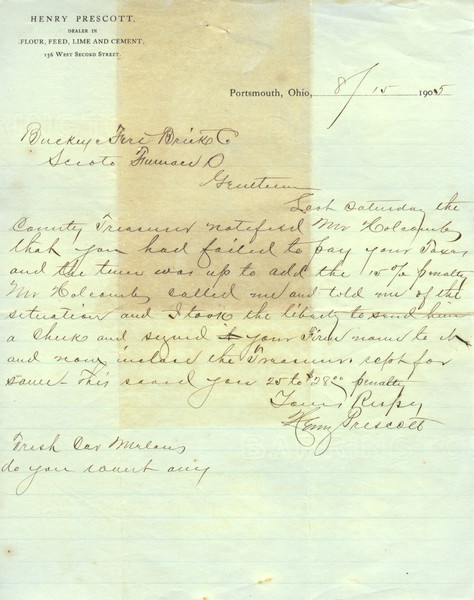 HENRY PRESCOTT,
DEALER IN
FLOUR, FEED, LIME AND CEMENT,
136 WEST SECOND STREET.
Portsmouth, Ohio, 8/15 1905
Buckeye Fire Brick Co
Scioto Furnace O
Gentlemen
Last Saturday the
County Treasurer notified Mr Holcomb
that you had failed to pay your Taxes
and the time was up to add the 15% penalty
Mr Holcomb called me and told me of the
situation and I took the liberty to send him
a check and signed it your Firm name to it
and now inclose the Treasurers recpt for
same This saved you 25 to $28.00 penalty
Yours Respy
Henry Prescott
Fresh Car Melons
do you want any